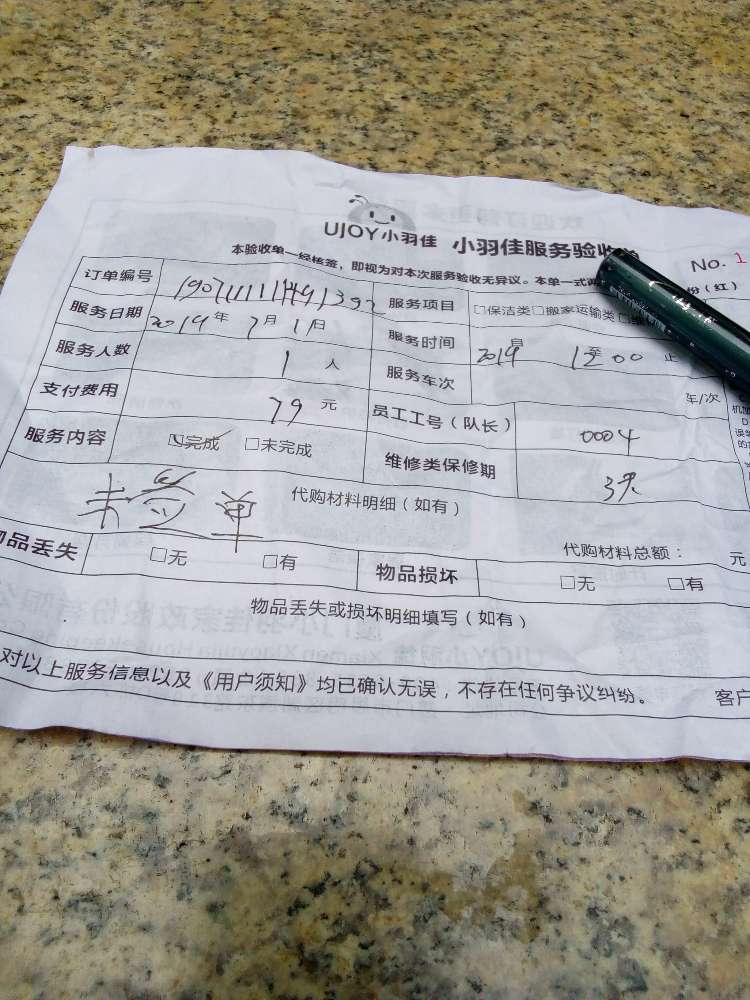 UJOY小羽佳 小羽佳服务验收
No. 1
本验收单一经核签，即视为对本次服务验收无异议。本单一式 份（红）
订单编号 服务项目 □保洁类□搬家运输类□
服务日期 2019年7月1日 服务时间 2019 自 至 1200 止
服务人数 1人 服务车次 车/次
支付费用 79元 员工工号（队长） 0004
服务内容 ☑完成 □未完成 维修类保修期 3天
未签单
代购材料明细（如有）
代购材料总额： 元
物品丢失 □无 □有 物品损坏 □无 □有
物品丢失或损坏明细填写（如有）
对以上服务信息以及《用户须知》均已确认无误，不存在任何争议纠纷。 客户